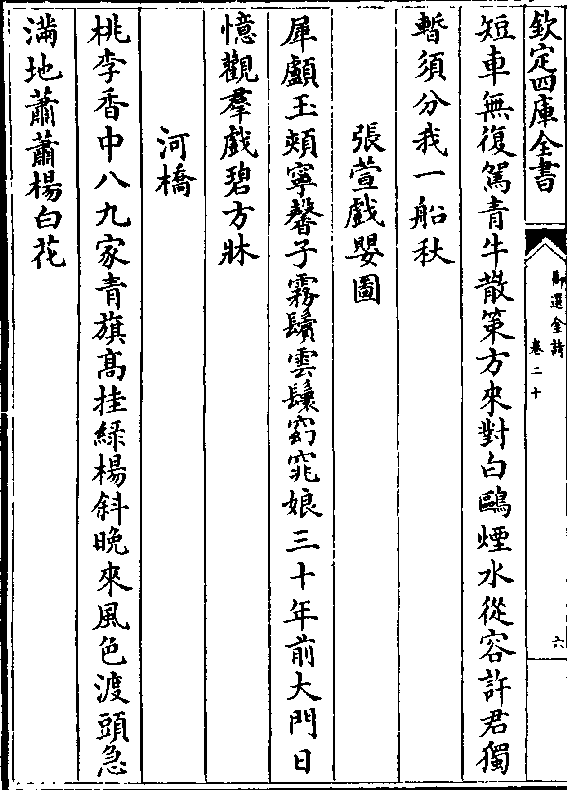 欽定四庫全書
御選金詩
卷二十
六
短車無復駕青牛散策方來對白鷗煙水從容許君獨
暫須分我一船秋
張萱戲嬰圖
犀顱玉頰寧馨子霧鬢雲鬟窈窕娘三十年前大門日
憶觀羣戲碧方牀
河橋
桃李香中八九家青旗高挂綠楊斜晚來風色渡頭急
滿地蕭蕭楊白花